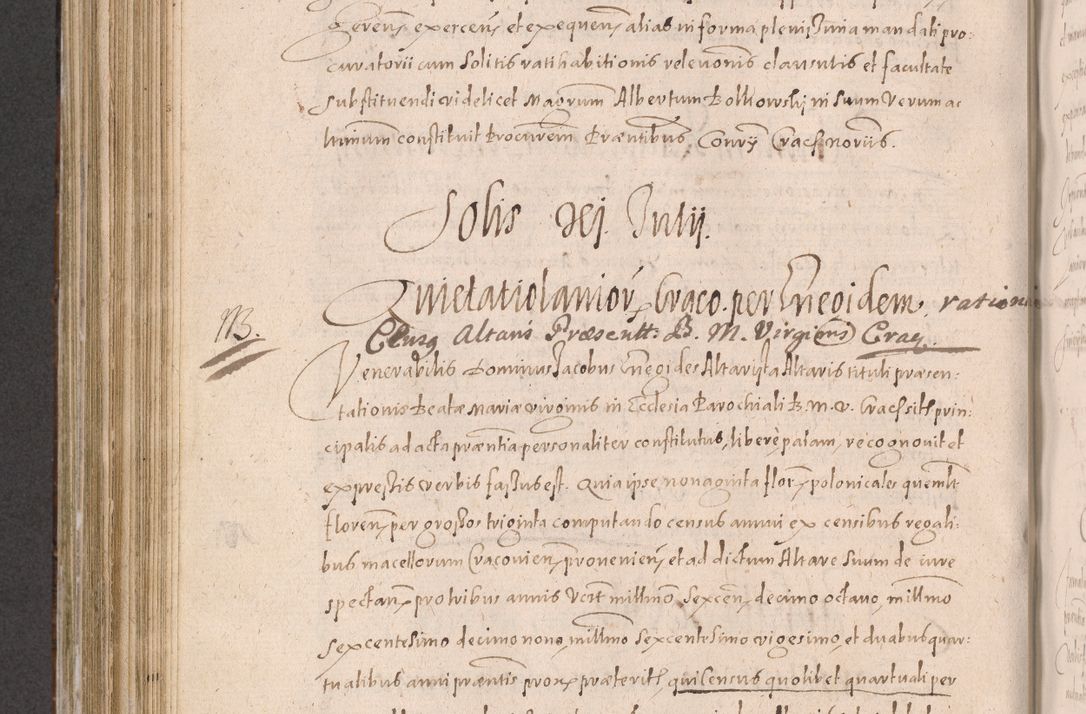 gerens, exercens, et exequens, alias in forma pleniss̃ima mandati pro:
curatorii cum solitis ratihabitionis relevonis clausulis et facultate
substituendi videlicet Magrum Albertum Bolkowskj in suum verum ac
ltimum constituit Procurem Præntibus Conrÿ Cracs̃ noriis.
Solis xej. Julij.
Quietatio laniorũ Craco. per Eneoidem, rationi
NB.
Census Altaris Præsentt. B. M. Virginis Crac.
Venerabilis Dominus Jacobus Eneoides Altarista Altaris tituli præsen:
tationis Beatæ Mariæ virginis in Ecclesia Parochiali B. M. V. Cracs̃ sitæ prin:
cipalis ad acta præntia personaliter constitutus, libere palam, recognovit et
expressis verbis fassus est. Quia ipse nonaginta flor, polonicales quemlt
floren, per grossos triginta computando census annui ex censibus regali:
bus macellorum Cracovien, provenien, et ad dictum Altare suum de iure
spectan, pro tribus annis vcrt millmo sexcen, decimo octavo, millmo
sexcentesimo decimo nono, millmo sexcentesimo vigesimo, et duabus quar:
tualibus anni præntis prox, præterith, qui Census quolibet quartuali per